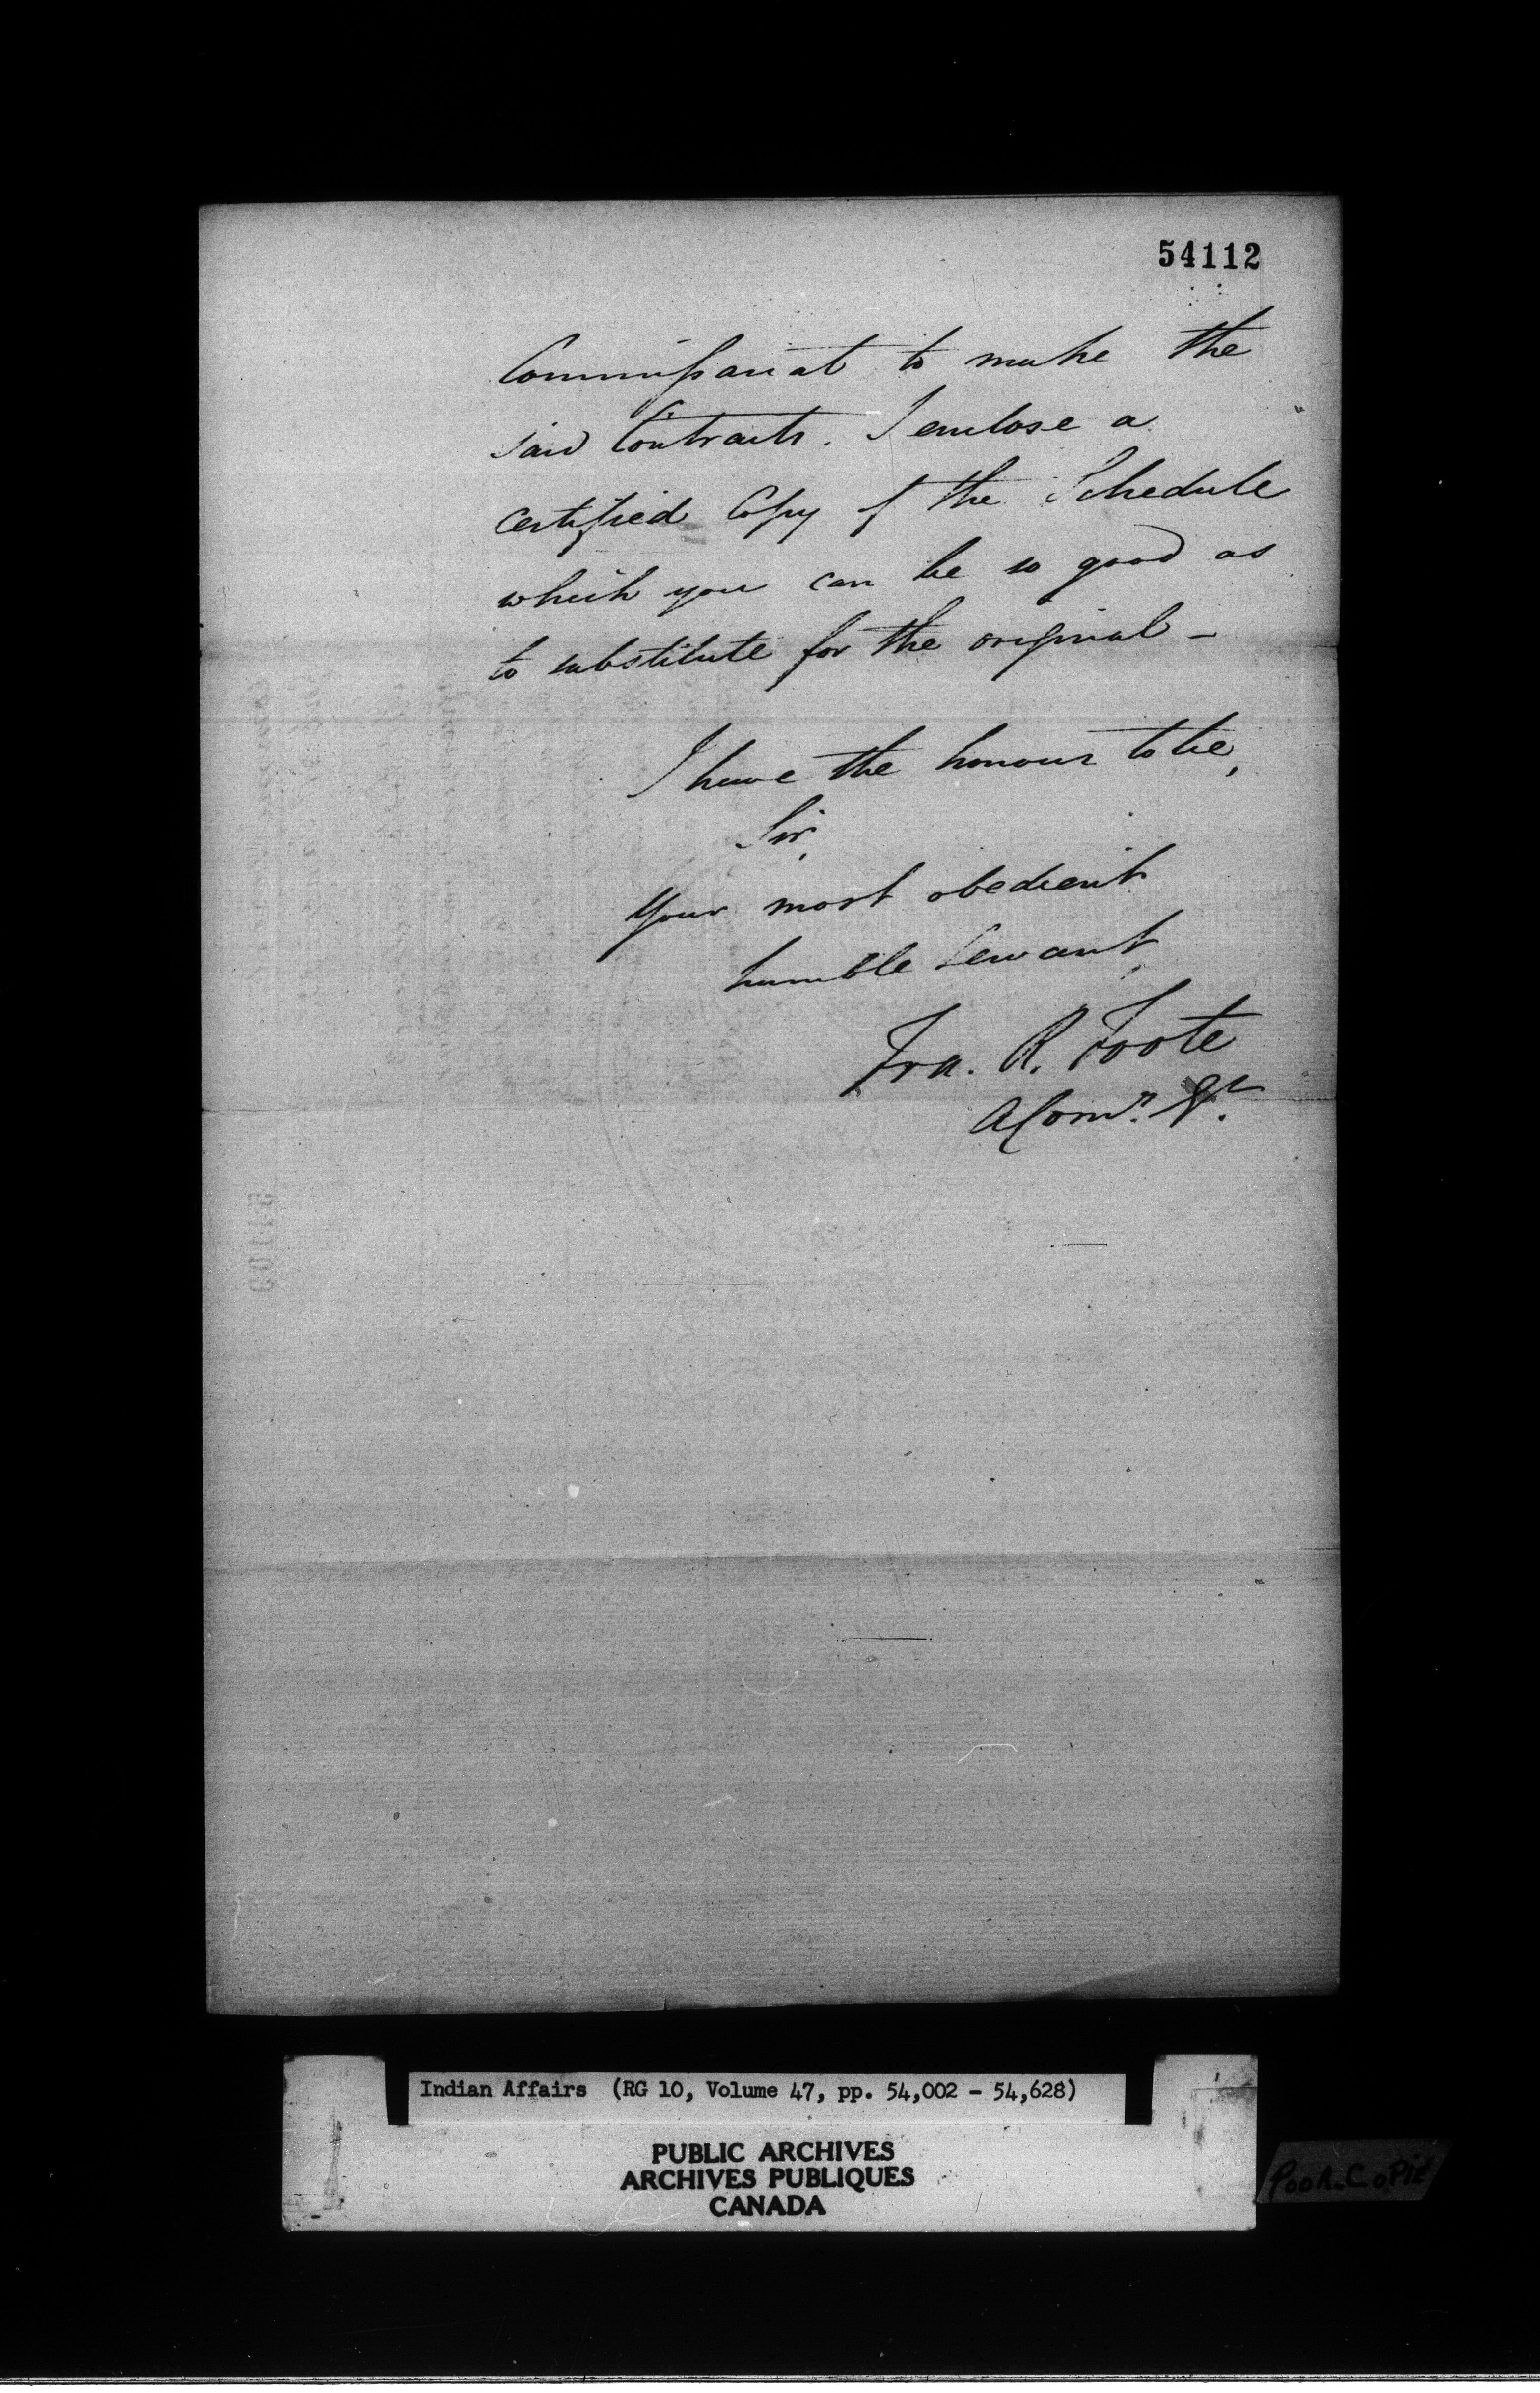 54112
Commissariat to make the
said Contracts. I enclose a
certified Copy of the Schedule
which you can be so good as
to substitute for the original –
I have the honour to be,
Sir,
Your most obedient
humble Servant
Fra. R. Foote
A Com.
Indian Affairs (RG 10, Volume 47, pp. 54,002 – 54,628)
PUBLIC ARCHIVES
ARCHIVES PUBLIQUES
CANADA
POOR COPIE